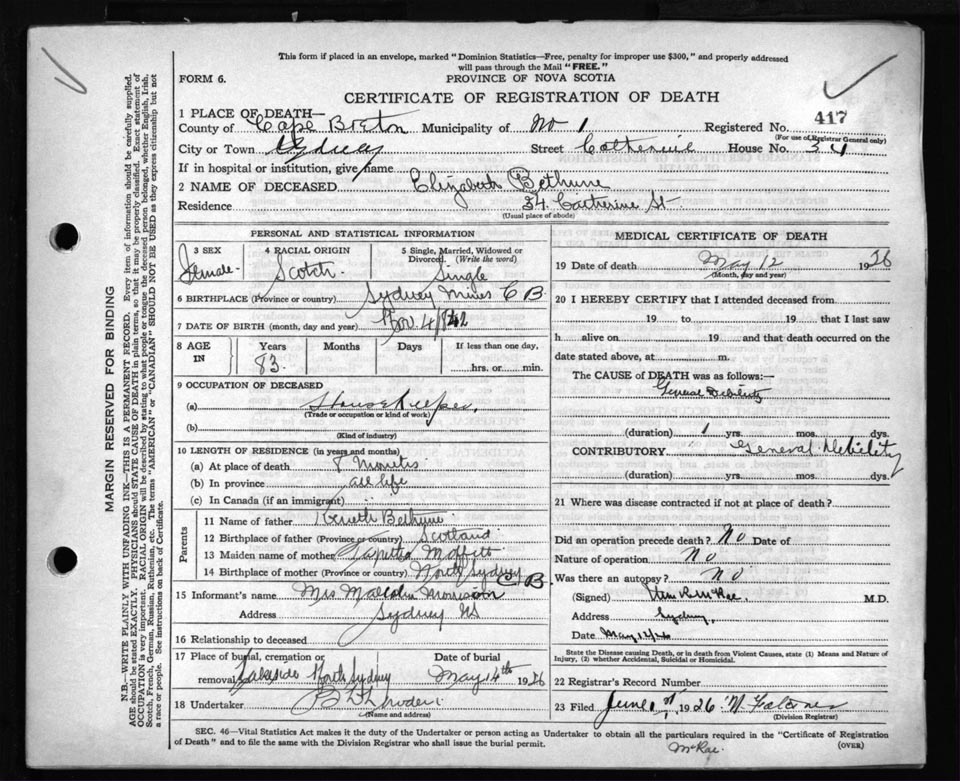 This form if placed in an envelope, marked "Dominion Statistics—Free, penalty for improper use $300," and properly addressed
will pass through the Mail "FREE."
FORM 6.
PROVINCE OF NOVA SCOTIA
CERTIFICATE OF REGISTRATION OF DEATH
1 PLACE OF DEATH—
County of Cape Breton Municipality of No 1 Registered No. 417
(For use of Registrar General only)
City or Town Sydney Street Catherine House No. 34
If in hospital or institution, give name
2 NAME OF DECEASED Elizabeth Bethune
Residence 34 Catherine St
(Usual place of abode)
PERSONAL AND STATISTICAL INFORMATION
3 SEX Female
4 RACIAL ORIGIN Scotch
5 Single, Married, Widowed or Divorced (Write the word) Single
6 BIRTHPLACE (Province or country) Sydney Mines C B
7 DATE OF BIRTH (month, day and year) Nov. 4/1842
8 AGE IN Years 83 Months Days If less than one day, hrs. or min.
9 OCCUPATION OF DECEASED
(a) Housekeeper
(Trade or occupation or kind of work)
(b)
(Kind of industry)
10 LENGTH OF RESIDENCE (in years and months)
(a) At place of death 8 months
(b) In province all life
(c) In Canada (if an immigrant)
Parents
11 Name of father Kenneth Bethune
12 Birthplace of father (Province or country) Scotland
13 Maiden name of mother Moffitt
14 Birthplace of mother (Province or country) North Sydney C B
15 Informant's name Mrs Malcolm Morrison
Address Sydney NS
16 Relationship to deceased
17 Place of burial, cremation or removal Lakeside North Sydney Date of burial May 14th 1926
18 Undertaker
(Name and address)
MEDICAL CERTIFICATE OF DEATH
19 Date of death May 12 1926
(Month, day and year)
20 I HEREBY CERTIFY that I attended deceased from
19 to 19 that I last saw
h alive on 19 and that death occurred on
date stated above, at m.
The CAUSE of DEATH was as follows:—
General Debility
(duration) 1 yrs. mos. dys.
CONTRIBUTORY General Debility
(duration) yrs. mos. dys.
21 Where was disease contracted if not at place of death?
Did an operation precede death? No Date of
Nature of operation No
Was there an autopsy? no
(Signed) McRae. M.D.
Address Sydney,
Date May 12/26
State the Disease causing Death, or in death from Violent Causes, state (1) Means and Nature of
Injury, (2) whether Accidental, Suicidal or Homicidal.
22 Registrar's Record Number
23 Filed June 1st 1926
(Division Registrar)
SEC. 46—Vital Statistics Act makes it the duty of the Undertaker or person acting as Undertaker to obtain all the particulars required in the "Certificate of Registration
of Death" and to file the same with the Division Registrar who shall issue the burial permit.
McRae.
(OVER)
MARGIN RESERVED FOR BINDING
N.B.—WRITE PLAINLY WITH UNFADING INK—THIS IS A PERMANENT RECORD. Every item of information should be carefully supplied.
AGE should be stated EXACTLY. PHYSICIANS should STATE CAUSE OF DEATH in plain terms, so that it may be properly classified. Exact statement of
OCCUPATION is very important. RACIAL ORIGIN will be described by stating to what people or tongue the deceased person belonged, whether English, Irish,
Scotch, French, German, Russian, Ruthenian, etc. The terms "AMERICAN" or "CANADIAN" SHOULD NOT BE USED as they express citizenship but not
a race or people. See instructions on back of Certificate.